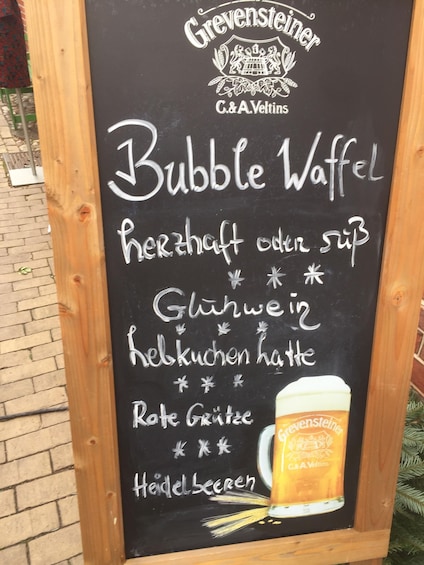 Grevensteiner
C. & A. Veltins
Bubble Waffel
herzhaft oder süß
* * *
Glühwein
* * * *
Lebkuchen hatte
* * *
Rote Grütze
* * *
Heidelbeeren
Grevensteiner
C. & A. Veltins